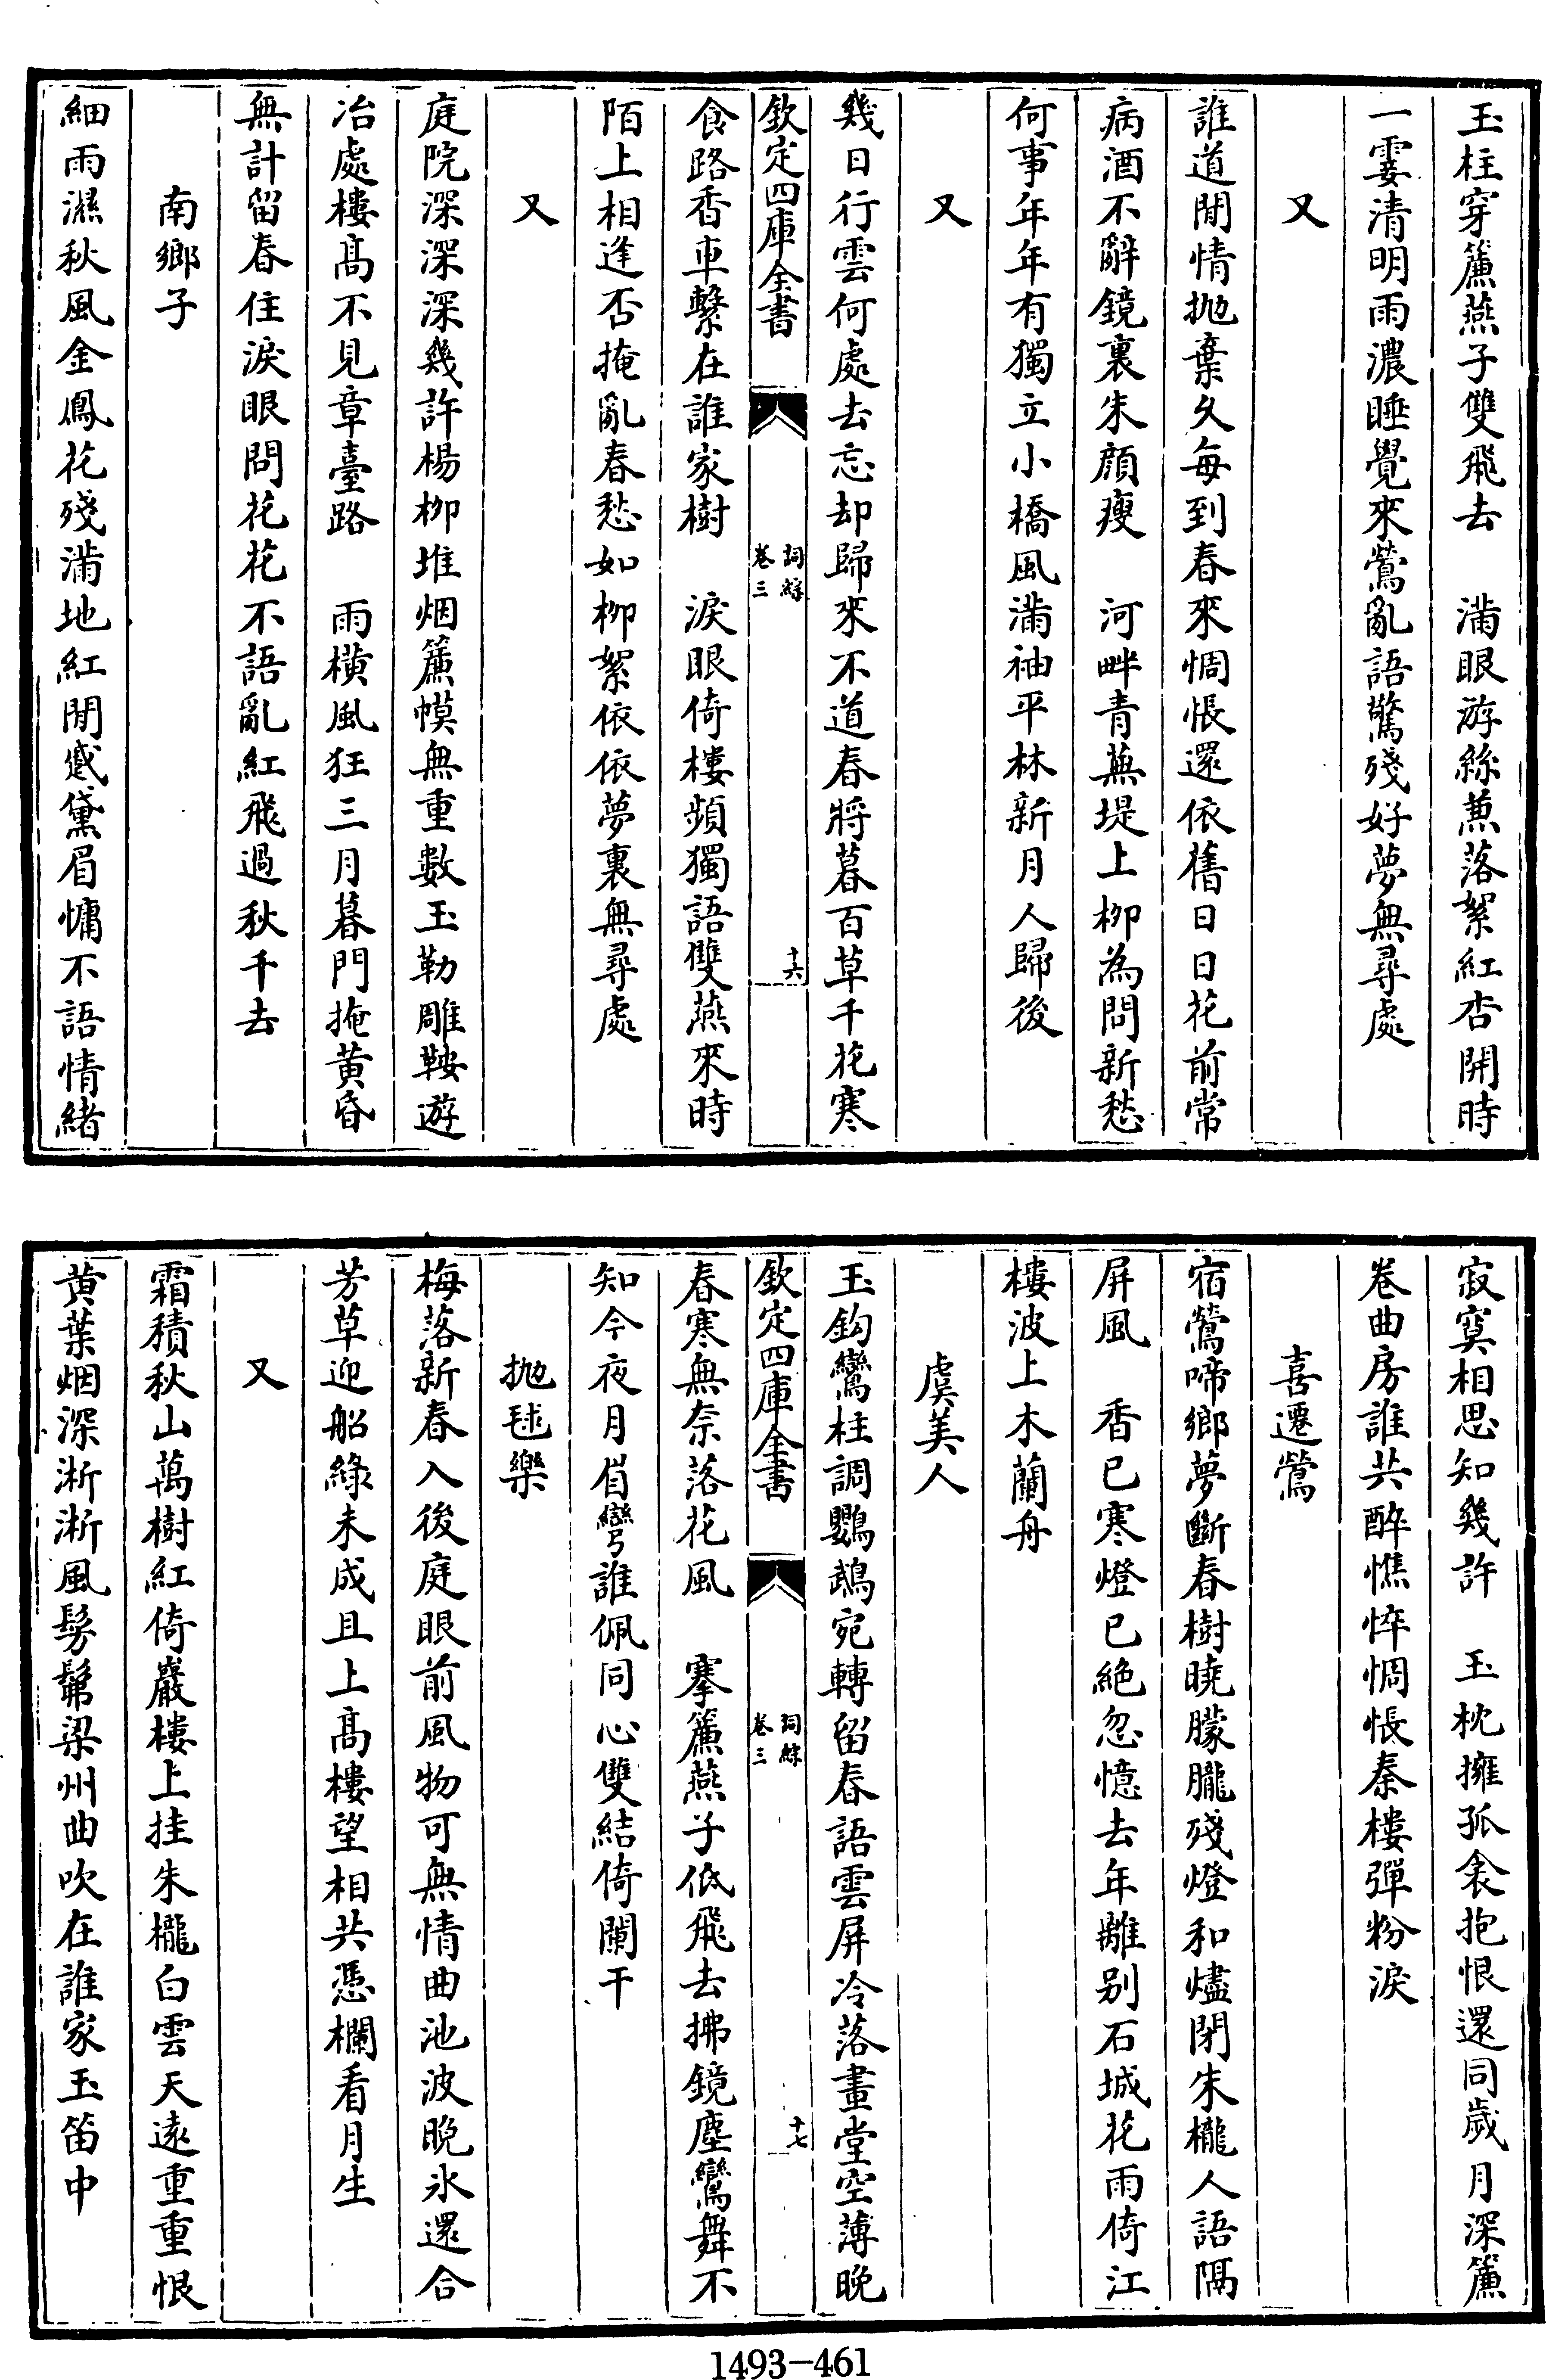 玉柱穿簾燕子雙飛去　滿眼游絲兼落絮紅杏開時
一霎清明雨濃睡覺來鶯亂語驚殘好夢無尋處
又
誰道閒情抛棄久每到春來惆悵還依舊日日花前常
病酒不辭鏡裏朱顔瘦　河畔青蕪堤上柳為問新愁
何事年年有獨立小橋風滿袖平林新月人歸後
又
幾日行雲何處去忘却歸來不道春將暮百草千花寒
欽定四庫全書
詞綜
卷三
十六
食路香車繫在誰家樹　淚眼倚樓頻獨語雙燕來時
陌上相逢否掩亂春愁如柳絮依依夢裏無尋處
又
庭院深深深幾許楊柳堆烟簾幙無重數玉勒雕鞍遊
冶處樓髙不見章臺路　雨横風狂三月暮門掩黄昏
無計留春住淚眼問花花不語亂紅飛過秋千去
南鄉子
細雨濕秋風金鳳花殘滿地紅閒蹙黛眉慵不語情緒
寂寞相思知幾許　玉枕擁孤衾抱恨還同歲月深簾
卷曲房誰共醉憔悴惆悵秦樓彈粉淚
喜遷鶯
宿鶯啼鄉夢斷春樹曉朦朧殘燈和燼閉朱櫳人語隔
屏風　香已寒燈已絕忽憶去年離别石城花雨倚江
樓波上木蘭舟
虞美人
玉鈎鸞柱調鸚鵡宛轉留春語雲屏冷落畫堂空薄晚
欽定四庫全書
詞綜
卷三
十七
春寒無奈落花風　搴簾燕子低飛去拂鏡塵鸞舞不
知今夜月眉彎誰佩同心雙結倚闌干
抛毬樂
梅落新春入後庭眼前風物可無情曲池波晚氷還合
芳草迎船綠未成且上髙樓望相共憑欄看月生
又
霜積秋山萬樹紅倚巖樓上挂朱櫳白雲天遠重重恨
黄葉烟深淅淅風髣髴梁州曲吹在誰家玉笛中
1493-461